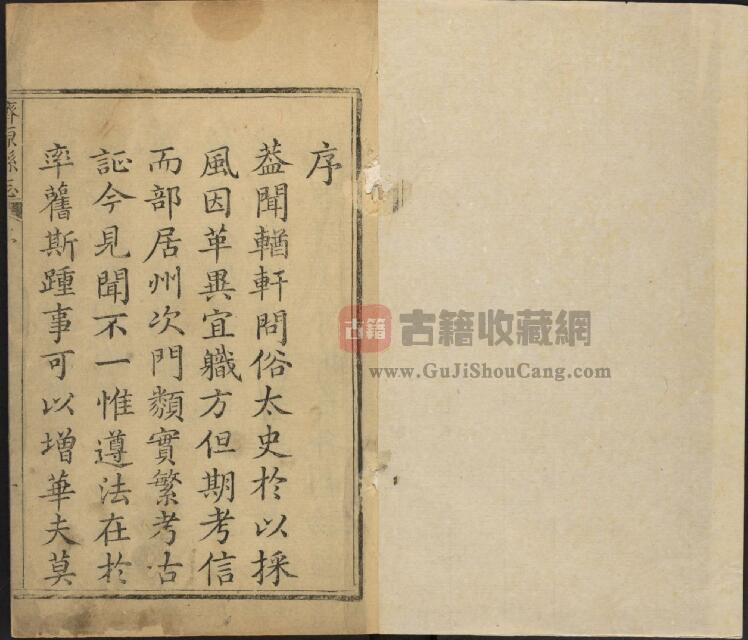 序
葢聞輶軒問俗太史於以採
風因革異宜軄方但期考信
而部居州次門類實繁考古
証今見聞不一惟遵法在於
率舊斯踵事可以增華夫莫
濟源縣志
古籍
古籍收藏網
www.GuJiShouCang.com